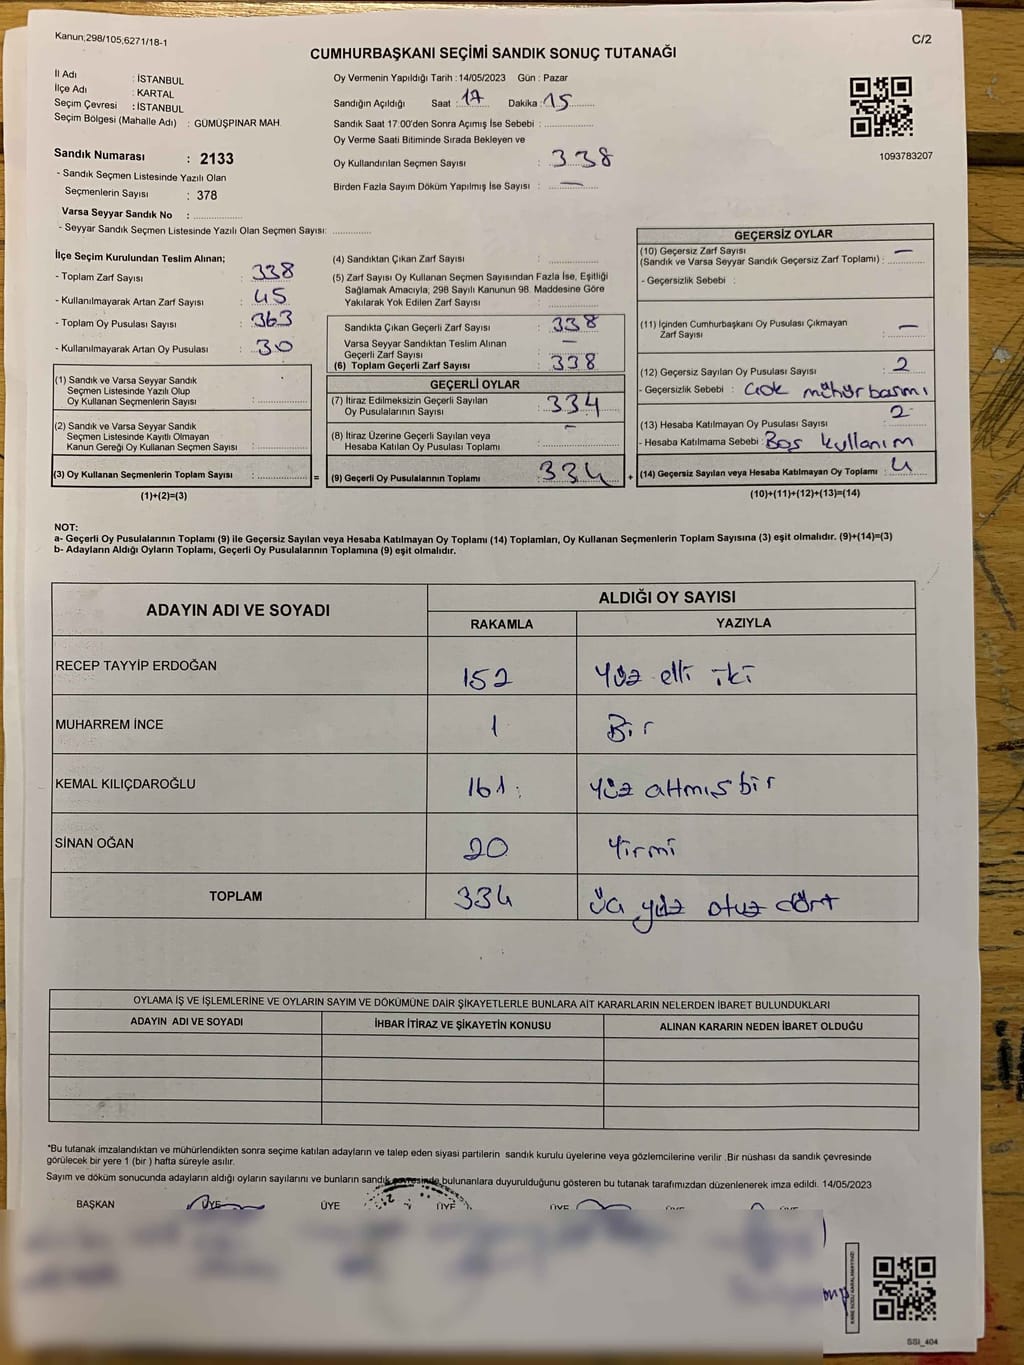 Kanun,298/105,6271/18-1
C/2
CUMHURBAŞKANI SEÇİMİ SANDIK SONUÇ TUTANAĞI
İl Adı : İSTANBUL
İlçe Adı : KARTAL
Seçim Çevresi : İSTANBUL
Seçim Bölgesi (Mahalle Adı) : GÜMÜŞPINAR MAH.
Sandık Numarası : 2133
- Sandık Seçmen Listesinde Yazılı Olan
Seçmenlerin Sayısı : 378
Varsa Seyyar Sandık No : ..............
- Seyyar Sandık Seçmen Listesinde Yazılı Olan Seçmen Sayısı: ............
Oy Vermenin Yapıldığı Tarih : 14/05/2023 Gün : Pazar
Sandığın Açıldığı Saat : 17 Dakika : 15
Sandık Saat 17:00'den Sonra Açımış İse Sebebi : ..............
Oy Verme Saati Bitiminde Sırada Bekleyen ve
Oy Kullandırılan Seçmen Sayısı : 338
Birden Fazla Sayım Döküm Yapılmış İse Sayısı : —
1093783207
İlçe Seçim Kurulundan Teslim Alınan;
- Toplam Zarf Sayısı : 338
- Kullanılmayarak Artan Zarf Sayısı : 45
- Toplam Oy Pusulası Sayısı : 363
- Kullanılmayarak Artan Oy Pusulası : 30
(1) Sandık ve Varsa Seyyar Sandık
Seçmen Listesinde Yazılı Olup
Oy Kullanan Seçmenlerin Sayısı : ............
(2) Sandık ve Varsa Seyyar Sandık
Seçmen Listesinde Kayıtlı Olmayan
Kanun Gereği Oy Kullanan Seçmen Sayısı : ............
(3) Oy Kullanan Seçmenlerin Toplam Sayısı : ............ =
(1)+(2)=(3)
(4) Sandıktan Çıkan Zarf Sayısı : ............
(5) Zarf Sayısı Oy Kullanan Seçmen Sayısından Fazla İse, Eşitliği
Sağlamak Amacıyla, 298 Sayılı Kanunun 98. Maddesine Göre
Yakılarak Yok Edilen Zarf Sayısı : ............
Sandıkta Çıkan Geçerli Zarf Sayısı : 338
Varsa Seyyar Sandıktan Teslim Alınan
Geçerli Zarf Sayısı : —
(6) Toplam Geçerli Zarf Sayısı : 338
GEÇERLİ OYLAR
(7) İtiraz Edilmeksizin Geçerli Sayılan
Oy Pusulalarının Sayısı : 334
(8) İtiraz Üzerine Geçerli Sayılan veya
Hesaba Katılan Oy Pusulası Toplamı : —
(9) Geçerli Oy Pusulalarının Toplamı : 334 +
GEÇERSİZ OYLAR
(10) Geçersiz Zarf Sayısı
(Sandık ve Varsa Seyyar Sandık Geçersiz Zarf Toplamı) : —
- Geçersizlik Sebebi :
(11) İçinden Cumhurbaşkanı Oy Pusulası Çıkmayan
Zarf Sayısı : —
(12) Geçersiz Sayılan Oy Pusulası Sayısı : 2
- Geçersizlik Sebebi : çok mühür basımı
(13) Hesaba Katılmayan Oy Pusulası Sayısı : 2
- Hesaba Katılmama Sebebi : Boş kullanım
(14) Geçersiz Sayılan veya Hesaba Katılmayan Oy Toplamı : 4
(10)+(11)+(12)+(13)=(14)
NOT:
a- Geçerli Oy Pusulalarının Toplamı (9) ile Geçersiz Sayılan veya Hesaba Katılmayan Oy Toplamı (14) Toplamları, Oy Kullanan Seçmenlerin Toplam Sayısına (3) eşit olmalıdır. (9)+(14)=(3)
b- Adayların Aldığı Oyların Toplamı, Geçerli Oy Pusulalarının Toplamına (9) eşit olmalıdır.
ADAYIN ADI VE SOYADI ALDIĞI OY SAYISI
RAKAMLA YAZIYLA
RECEP TAYYİP ERDOĞAN 152 Yüz elli iki
MUHARREM İNCE 1 Bir
KEMAL KILIÇDAROĞLU 161 yüz altmış bir
SİNAN OĞAN 20 Yirmi
TOPLAM 334 üç yüz otuz dört
OYLAMA İŞ VE İŞLEMLERİNE VE OYLARIN SAYIM VE DÖKÜMÜNE DAİR ŞİKAYETLERLE BUNLARA AİT KARARLARIN NELERDEN İBARET BULUNDUKLARI
ADAYIN ADI VE SOYADI İHBAR İTİRAZ VE ŞİKAYETİN KONUSU ALINAN KARARIN NEDEN İBARET OLDUĞU
*Bu tutanak imzalandıktan ve mühürlendikten sonra seçime katılan adayların ve talep eden siyasi partilerin sandık kurulu üyelerine veya gözlemcilerine verilir .Bir nüshası da sandık çevresinde
görülecek bir yere 1 (bir ) hafta süreyle asılır.
Sayım ve döküm sonucunda adayların aldığı oyların sayılarını ve bunların sandık çevresinde bulunanlara duyurulduğunu gösteren bu tutanak tarafımızdan düzenlenerek imza edildi. 14/05/2023
BAŞKAN ÜYE ÜYE ÜYE ÜYE
SSI_404